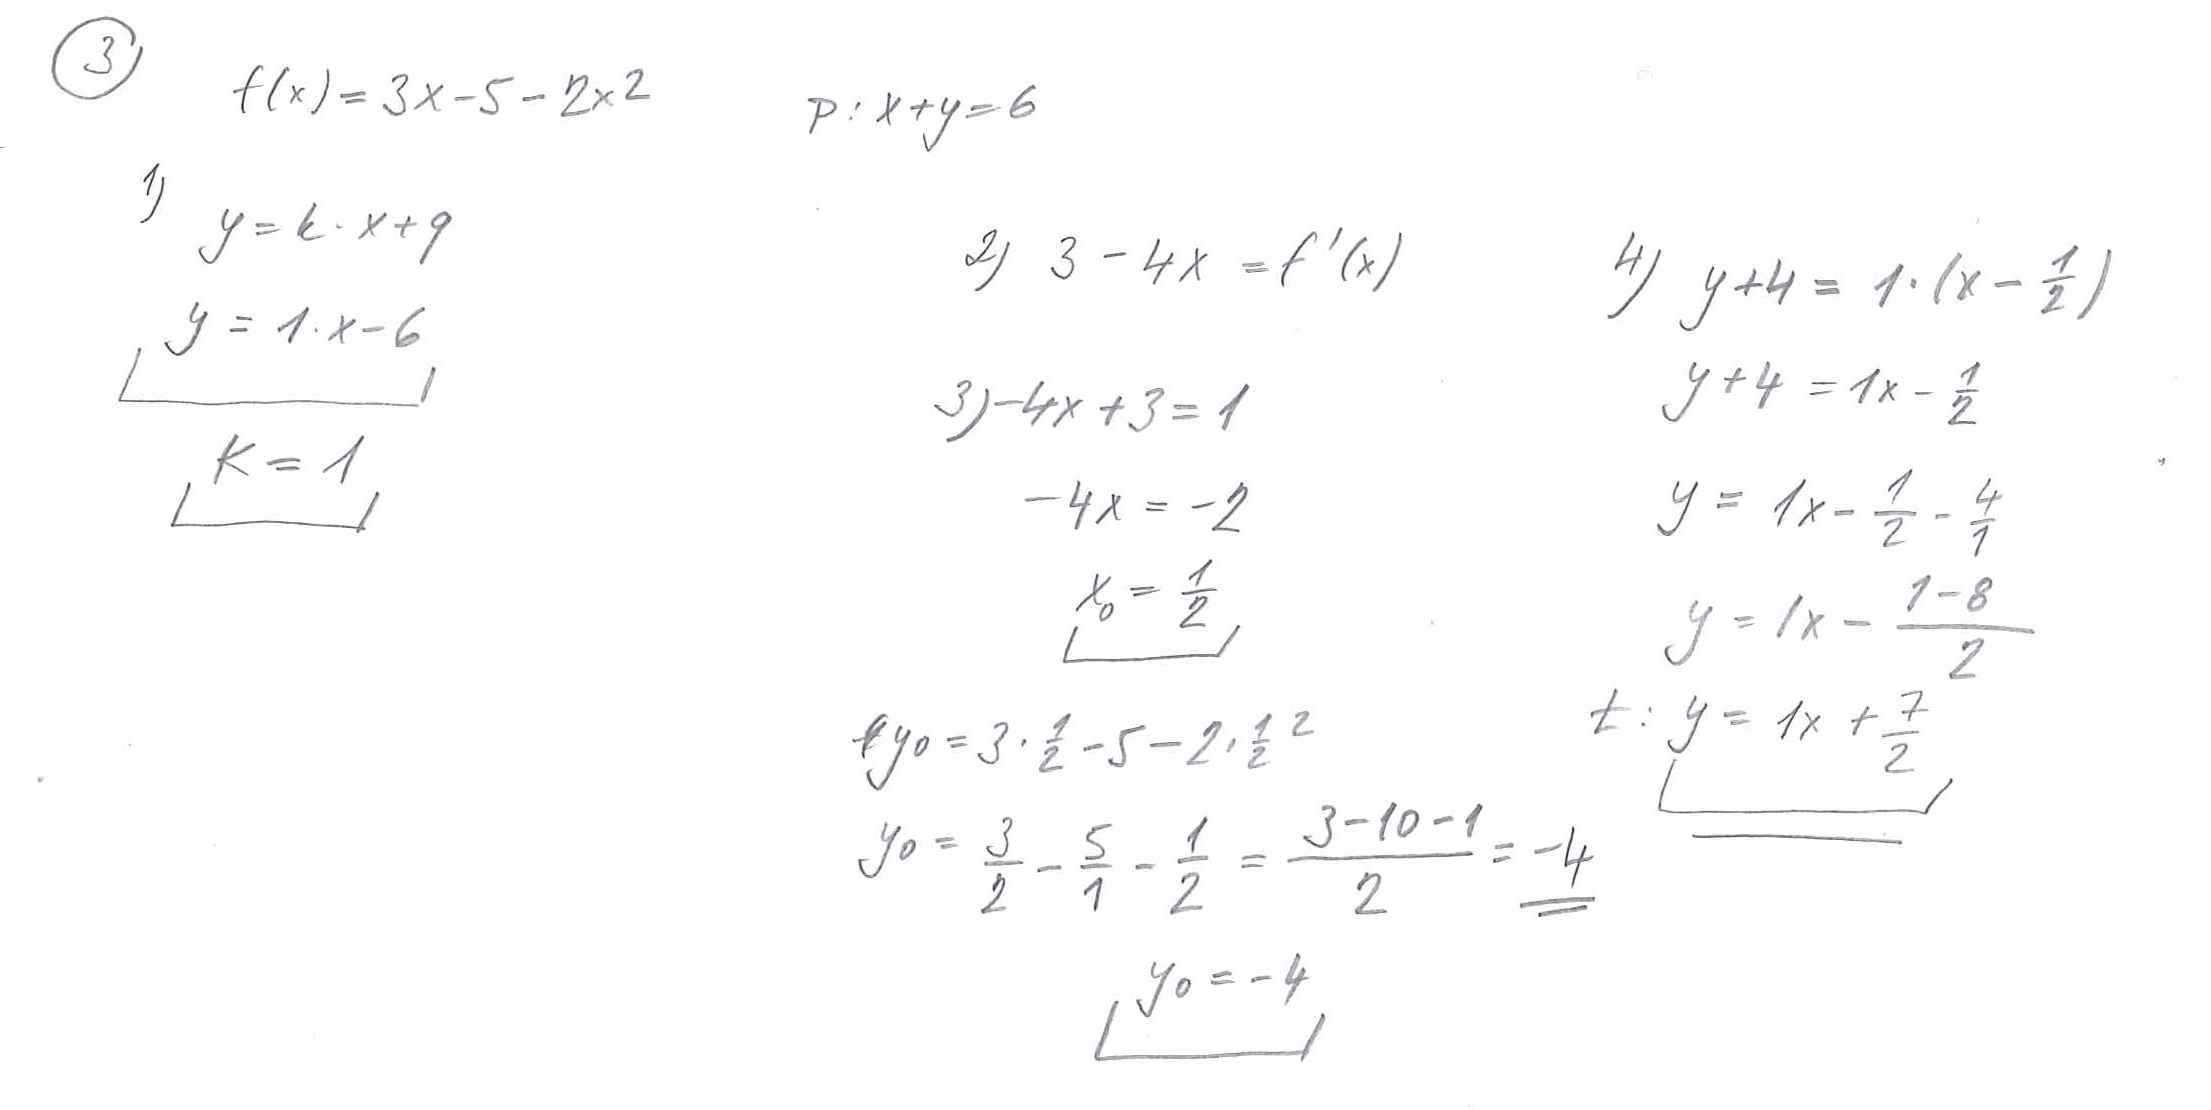 3
f(x)=3x-5-2x2
p: x+y=6
1)
y=k·x+q
y=1·x-6
K=1
2) 3-4x=f'(x)
3) -4x+3=1
-4x=-2
x₀=1/2
y₀=3·1/2-5-2·1/2²
y₀=3/2-5/1-1/2=(3-10-1)/2=-4
y₀=-4
4) y+4=1·(x-1/2)
y+4=1x-1/2
y=1x-1/2-4/1
y=1x-(1-8)/2
t: y=1x+7/2